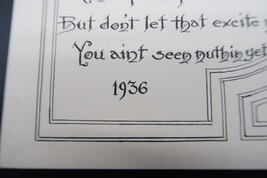 But don't let that excite
You aint seen nuthin yet
1936